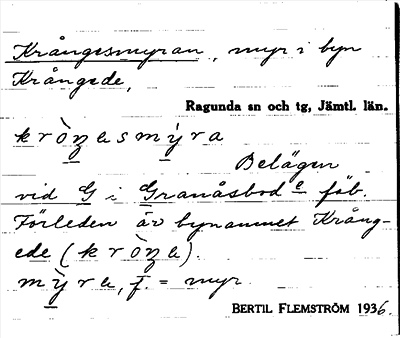 Krångesmyran, myr i byn
Krångede,
Ragunda sn och tg, Jämtl. län.
Belägen
vid G i Granåsbod e fäb.
Förleden är bynamnet Krång-
ede
f. = myr
BERTIL FLEMSTRÖM 1936.